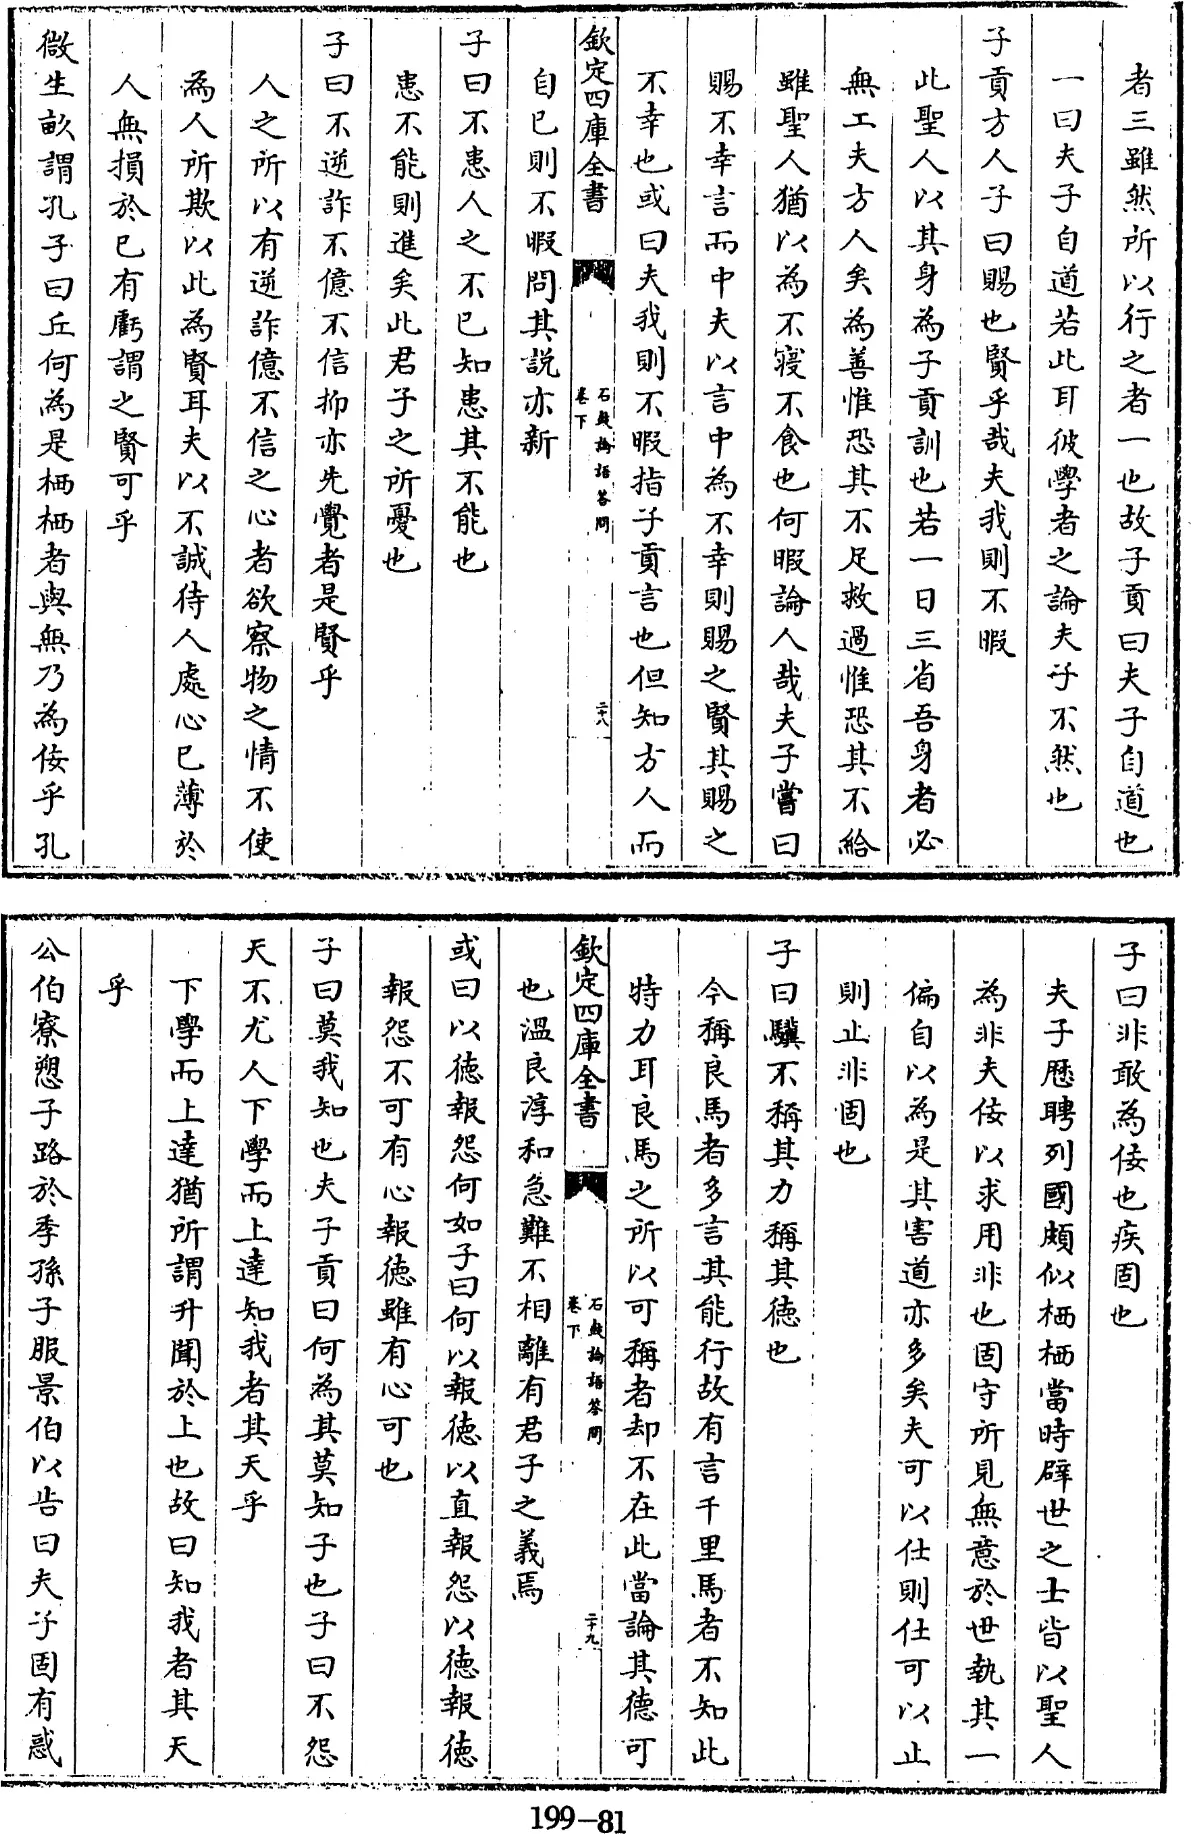 者三雖然所以行之者一也故子貢曰夫子自道也
一曰夫子自道若此耳彼學者之論夫子不然也
子貢方人子曰賜也賢乎哉夫我則不暇
此聖人以其身為子貢訓也若一日三省吾身者必
無工夫方人矣為善惟恐其不足救過惟恐其不給
雖聖人猶以為不寝不食也何暇論人哉夫子嘗曰
賜不幸言而中夫以言中為不幸則賜之賢其賜之
不幸也或曰夫我則不暇指子貢言也但知方人而
欽定四庫全書
石鼓論語答問
卷下
二十八
自已則不暇問其説亦新
子曰不患人之不已知患其不能也
患不能則進矣此君子之所憂也
子曰不逆詐不億不信抑亦先覺者是賢乎
人之所以有逆詐億不信之心者欲察物之情不使
為人所欺以此為賢耳夫以不誠待人處心已薄於
人無損於已有虧謂之賢可乎
微生畝謂孔子曰丘何為是栖栖者與無乃為佞乎孔
子曰非敢為佞也疾固也
夫子歴聘列國頗似栖栖當時辟世之士皆以聖人
為非夫佞以求用非也固守所見無意於世執其一
偏自以為是其害道亦多矣夫可以仕則仕可以止
則止非固也
子曰驥不稱其力稱其徳也
今稱良馬者多言其能行故有言千里馬者不知此
特力耳良馬之所以可稱者却不在此當論其徳可
欽定四庫全書
石鼓論語答問
卷下
二十九
也溫良淳和急難不相離有君子之義焉
或曰以徳報怨何如子曰何以報徳以直報怨以徳報徳
報怨不可有心報徳雖有心可也
子曰莫我知也夫子貢曰何為其莫知子也子曰不怨
天不尤人下學而上達知我者其天乎
下學而上達猶所謂升聞於上也故曰知我者其天
乎
公伯寮愬子路於季孫子服景伯以告曰夫子固有惑
199-81